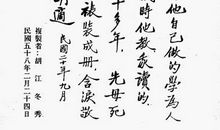 他自己做的學為人
時他教家讀的
十多年，先母死
被裝成册，含淚敬
適
民國二十年九月
複製者：胡江冬秀
民國五十八年二月二十四日